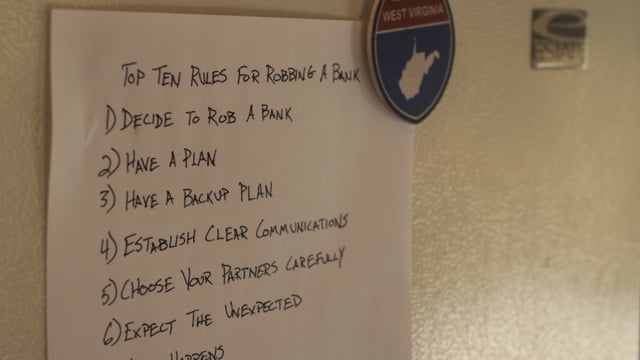 WEST VIRGINIA
ESTATE
TOP TEN RULES FOR ROBBING A BANK
1) DECIDE TO ROB A BANK
2) HAVE A PLAN
3) HAVE A BACKUP PLAN
4) ESTABLISH CLEAR COMMUNICATIONS
5) CHOOSE YOUR PARTNERS CAREFULLY
6) EXPECT THE UNEXPECTED
HAPPENS